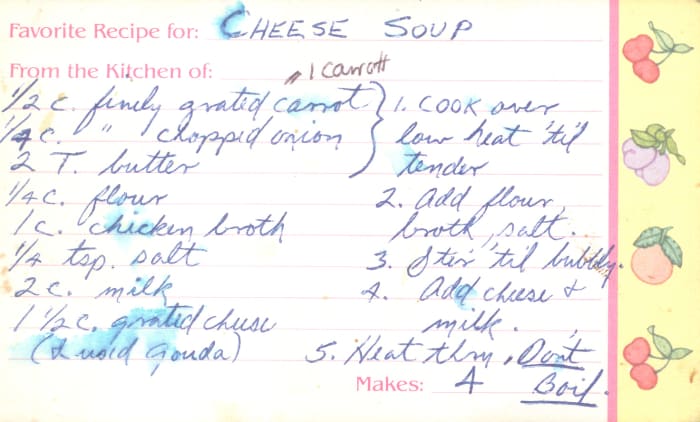 Favorite Recipe for: CHEESE SOUP
From the Kitchen of:
" 1 carrott
1/2 c. finely grated carrot
1/4 c. " chopped onion
2 T. butter
1/4 c. flour
1 c. chicken broth
1/4 tsp. salt
2 c. milk
1 1/2 c. grated cheese
(I used Gouda)
1. COOK over
low heat 'til
tender
2. Add flour,
broth, salt.
3. Stir 'til bubbly.
4. Add cheese &
milk.
5. Heat thru, Don't
Boil.
Makes: 4